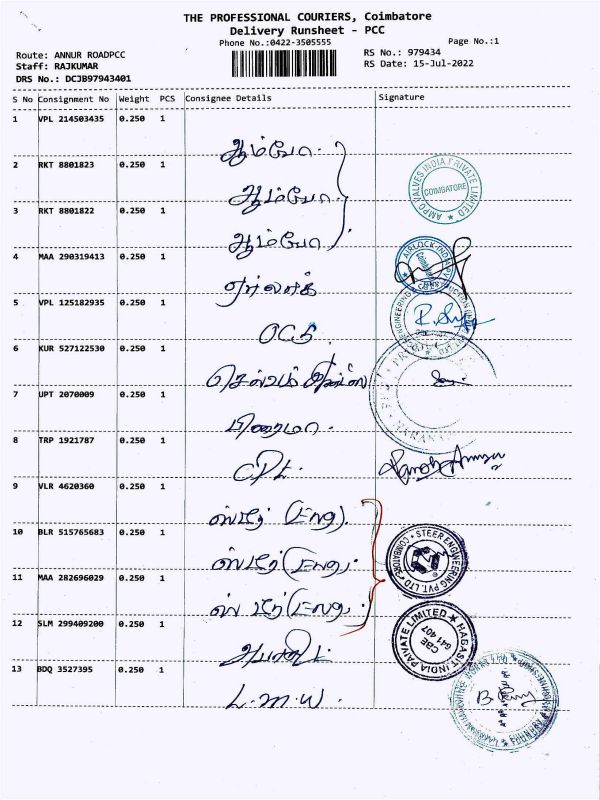 THE PROFESSIONAL COURIERS, Coimbatore
Delivery Runsheet - PCC
Phone No.:0422-3505555
Page No.:1
Route: ANNUR ROADPCC
RS No.: 979434
Staff: RAJKUMAR
RS Date: 15-Jul-2022
DRS No.: DCJB97943401
S No Consignment No Weight PCS Consignee Details Signature
1 VPL 214503435 0.250 1
ஆம்போ.
2 RKT 8801823 0.250 1
ஆம்போ.
AMPO VALVES INDIA PRIVATE LIMITED ★ COIMBATORE
3 RKT 8801822 0.250 1
ஆம்போ.
4 MAA 290319413 0.250 1
ஏர்லாக்
5 VPL 125182935 0.250 1
OCS.
6 KUR 527122530 0.250 1
7 UPT 2070009 0.250 1
8 TRP 1921787 0.250 1
9 VLR 4620360 0.250 1
ஸ்டீர் (Eng).
10 BLR 515765683 0.250 1
ஸ்டீர் (Eng.
STEER ENGINEERING PVT. LTD ★ COIMBATORE
11 MAA 282696029 0.250 1
ஸ்டீர் (Eng.
12 SLM 299409200 0.250 1
HABASIT INDIA PRIVATE LIMITED ★ CBE 641 407
13 BDQ 3527395 0.250 1
L.M.W.